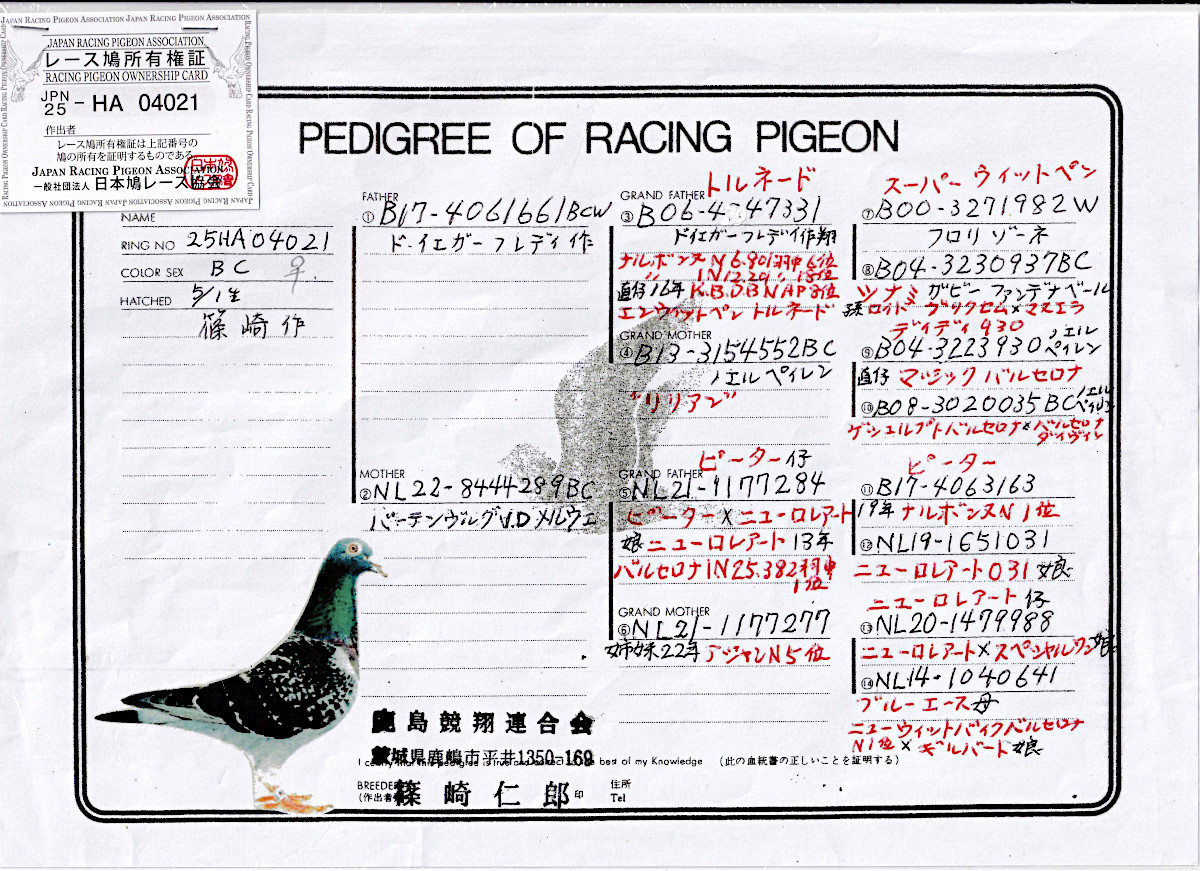 JAPAN RACING PIGEON ASSOCIATION JAPAN RACING PIGEON ASSOCIATION
JAPAN RACING PIGEON ASSOCIATION
レース鳩所有権証
RACING PIGEON OWNERSHIP CARD
JPN 25 - HA 04021
作出者
レース鳩所有権証は上記番号の
鳩の所有を証明するものである
JAPAN RACING PIGEON ASSOCIATION
一般社団法人 日本鳩レース協会
PEDIGREE OF RACING PIGEON
NAME
RING NO 25HA04021
COLOR SEX BC ♀.
HATCHED 5/1生
篠崎作
FATHER
①B17-4061661BCW
ド・イエガーフレディ作
MOTHER
②NL22-8444289BC
バーテンヴルグV.Dメルウエ
GRAND FATHER トルネード
③B06-4247331
ドイエガーフレディ作翔
ナルボンヌN6.901羽中6位
〃 IN12.201〃18位
直仔16年K.B.D.B N AP8位
エンウィットペントルネード
GRAND MOTHER
④B13-3154552BC
ノエルペイレン
"リリアン"
GRAND FATHER ピーター仔
⑤NL21-1177284
ピーター×ニューロレアート
娘ニューロレアート13年
バルセロナIN25.382羽中
1位
GRAND MOTHER
⑥NL21-1177277
姉妹22年アジャンN5位
スーパーウィットペン
⑦B00-3271982W
フロリゾーネ
⑧B04-3230937BC
ツナミ ガビーファンデナベール
孫ロイドブリクセム×マヌエラ
ディディ930
⑨B04-3223930ノエルペイレン
直仔マジックバルセロナ
⑩B08-3020035BCノエルペイレン
ゲシエルプトバルセロナ×バルセロナダイヴィン
ピーター
⑪B17-4063163
19年ナルボンヌN1位
⑫NL19-1651031
ニューロレアート031娘
ニューロレアート仔
⑬NL20-1479988
ニューロレアート×スペシャルワン娘
⑭NL14-1040641
ブルーエース母
ニューウィットバイクバルセロナ
N1位×ギルバート娘
鹿島競翔連合会
茨城県鹿嶋市平井1350-169
best of my Knowledge (此の血統書の正しいことを証明する)
BREEDER
(作出者) 篠崎仁郎 印
住所
Tel